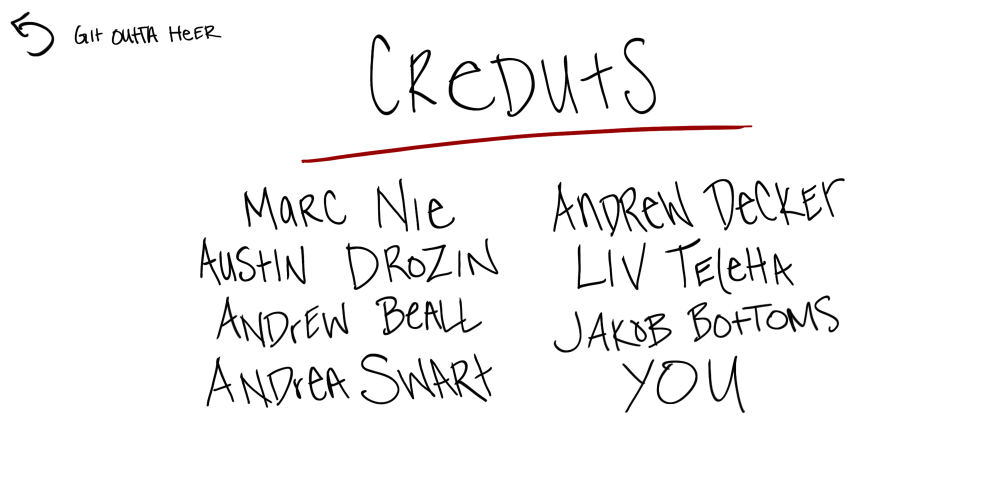 Git OUttA HeER
CReDUtS
MaRC NIe
AUStIN DRoZIN
ANDrEW BeALL
ANDreA SWARt
AnDReW DeCKEr
LIV TEleHA
JAKoB BottOMS
YOU